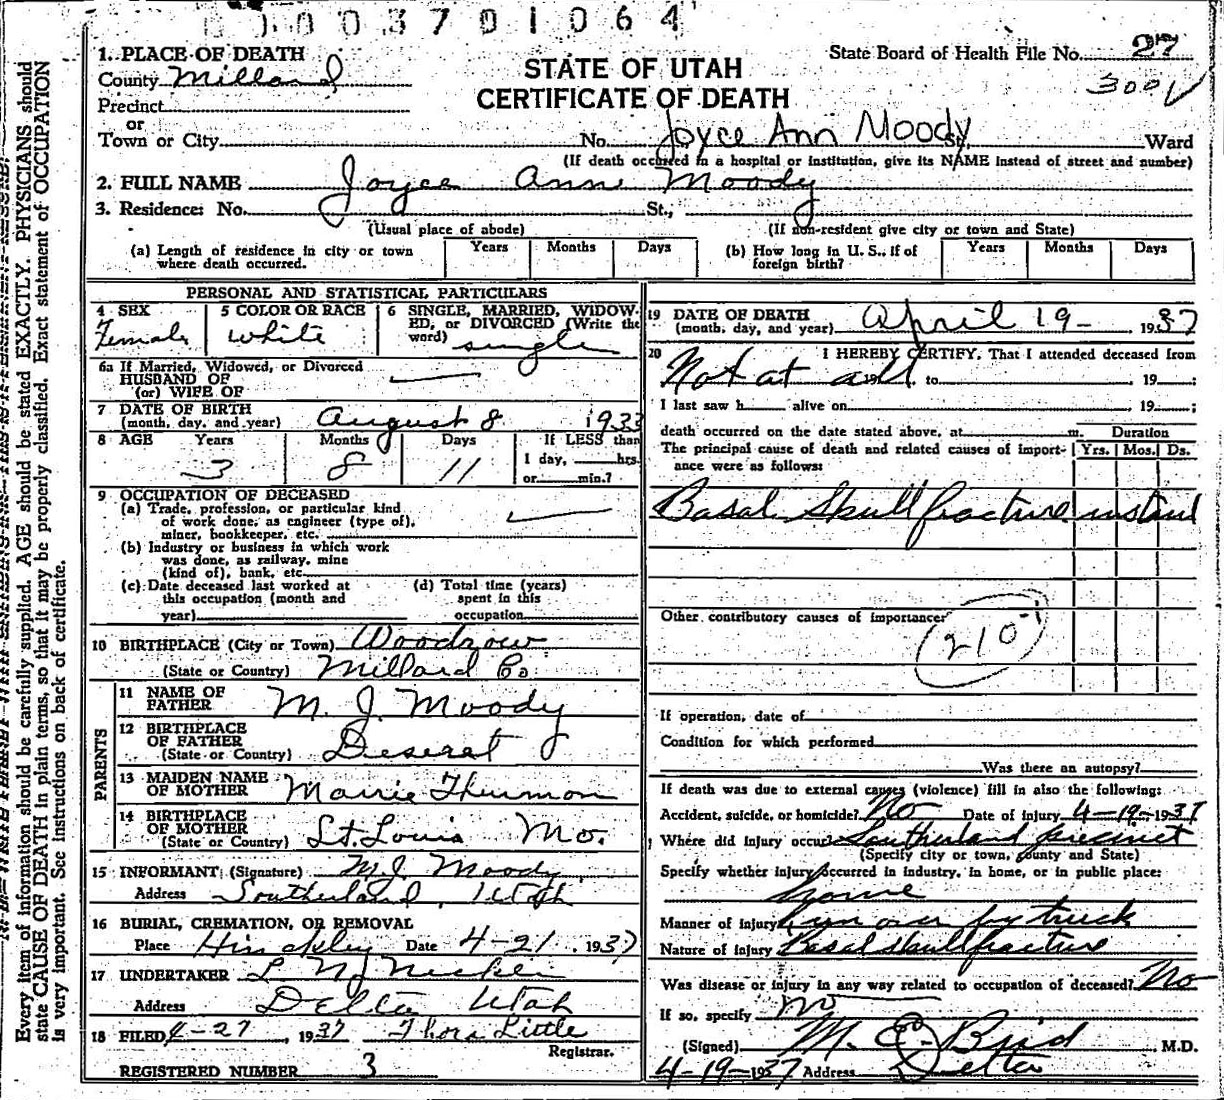 0003701064
1. PLACE OF DEATH
County Millard
Precinct
or
Town or City No. St. Ward
STATE OF UTAH
CERTIFICATE OF DEATH
State Board of Health File No. 27
3001
Joyce Ann Moody
(If death occurred in a hospital or institution, give its NAME instead of street and number)
2. FULL NAME Joyce Ann Moody
3. Residence: No. St.,
(Usual place of abode) (If non-resident give city or town and State)
(a) Length of residence in city or town where death occurred. Years Months Days
(b) How long in U. S., if of foreign birth? Years Months Days
PERSONAL AND STATISTICAL PARTICULARS
4 SEX Female
5 COLOR OR RACE White
6 SINGLE, MARRIED, WIDOW-
ED, or DIVORCED (Write the
word) single
6a If Married, Widowed, or Divorced
HUSBAND OF
(or) WIFE OF
7 DATE OF BIRTH
(month, day, and year) August 8 1933
8 AGE Years Months Days If LESS than
3 8 11 1 day, hrs.
or min.?
9 OCCUPATION OF DECEASED
(a) Trade, profession, or particular kind
of work done, as engineer (type of),
miner, bookkeeper, etc.
(b) Industry or business in which work
was done, as railway, mine
(kind of), bank, etc.
(c) Date deceased last worked at
this occupation (month and
year)
(d) Total time (years)
spent in this
occupation
10 BIRTHPLACE (City or Town) Woodrow
(State or Country) Millard Co
PARENTS
11 NAME OF
FATHER M. J. Moody
12 BIRTHPLACE
OF FATHER
(State or Country) Deseret
13 MAIDEN NAME
OF MOTHER Thurmon
14 BIRTHPLACE
OF MOTHER
(State or Country) St. Louis Mo.
15 INFORMANT: (Signature) M.J. Moody
Address Southerland, Utah
16 BURIAL, CREMATION, OR REMOVAL
Place Hinckley Date 4-21, 1937
17 UNDERTAKER
Address Delta Utah
18 FILED 4-27, 1937 Thora Little
Registrar.
REGISTERED NUMBER 3
19 DATE OF DEATH
(month, day, and year) April 19- 1937
20 I HEREBY CERTIFY, That I attended deceased from
Not at all to 19 ;
I last saw h alive on 19 ;
death occurred on the date stated above, at m. Duration
The principal cause of death and related causes of import-
ance were as follows: Yrs. Mos. Ds.
Basal Skull fracture instant
Other contributory causes of importance:
210
If operation, date of
Condition for which performed
Was there an autopsy?
If death was due to external causes (violence) fill in also the following:
Accident, suicide, or homicide? No Date of injury 4-19-1937
Where did injury occur? Southerland precinct
(Specify city or town, county and State)
Specify whether injury occurred in industry, in home, or in public place:
home
Manner of injury Run over by truck
Nature of injury Basal skull fracture
Was disease or injury in any way related to occupation of deceased? No
If so, specify no
(Signed) M. E. Bird M.D.
4-19-1937 Address Delta
Every item of information should be carefully supplied. AGE should be stated EXACTLY. PHYSICIANS should
state CAUSE OF DEATH in plain terms, so that it may be properly classified. Exact statement of OCCUPATION
is very important. See instructions on back of certificate.